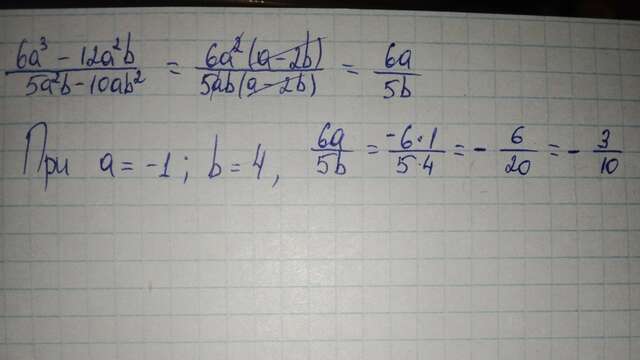 6a³ − 12a²b / 5a²b − 10ab² = 6a²(a − 2b) / 5ab(a − 2b) = 6a / 5b
При a = -1; b = 4, 6a / 5b = -6·1 / 5·4 = - 6 / 20 = - 3 / 10